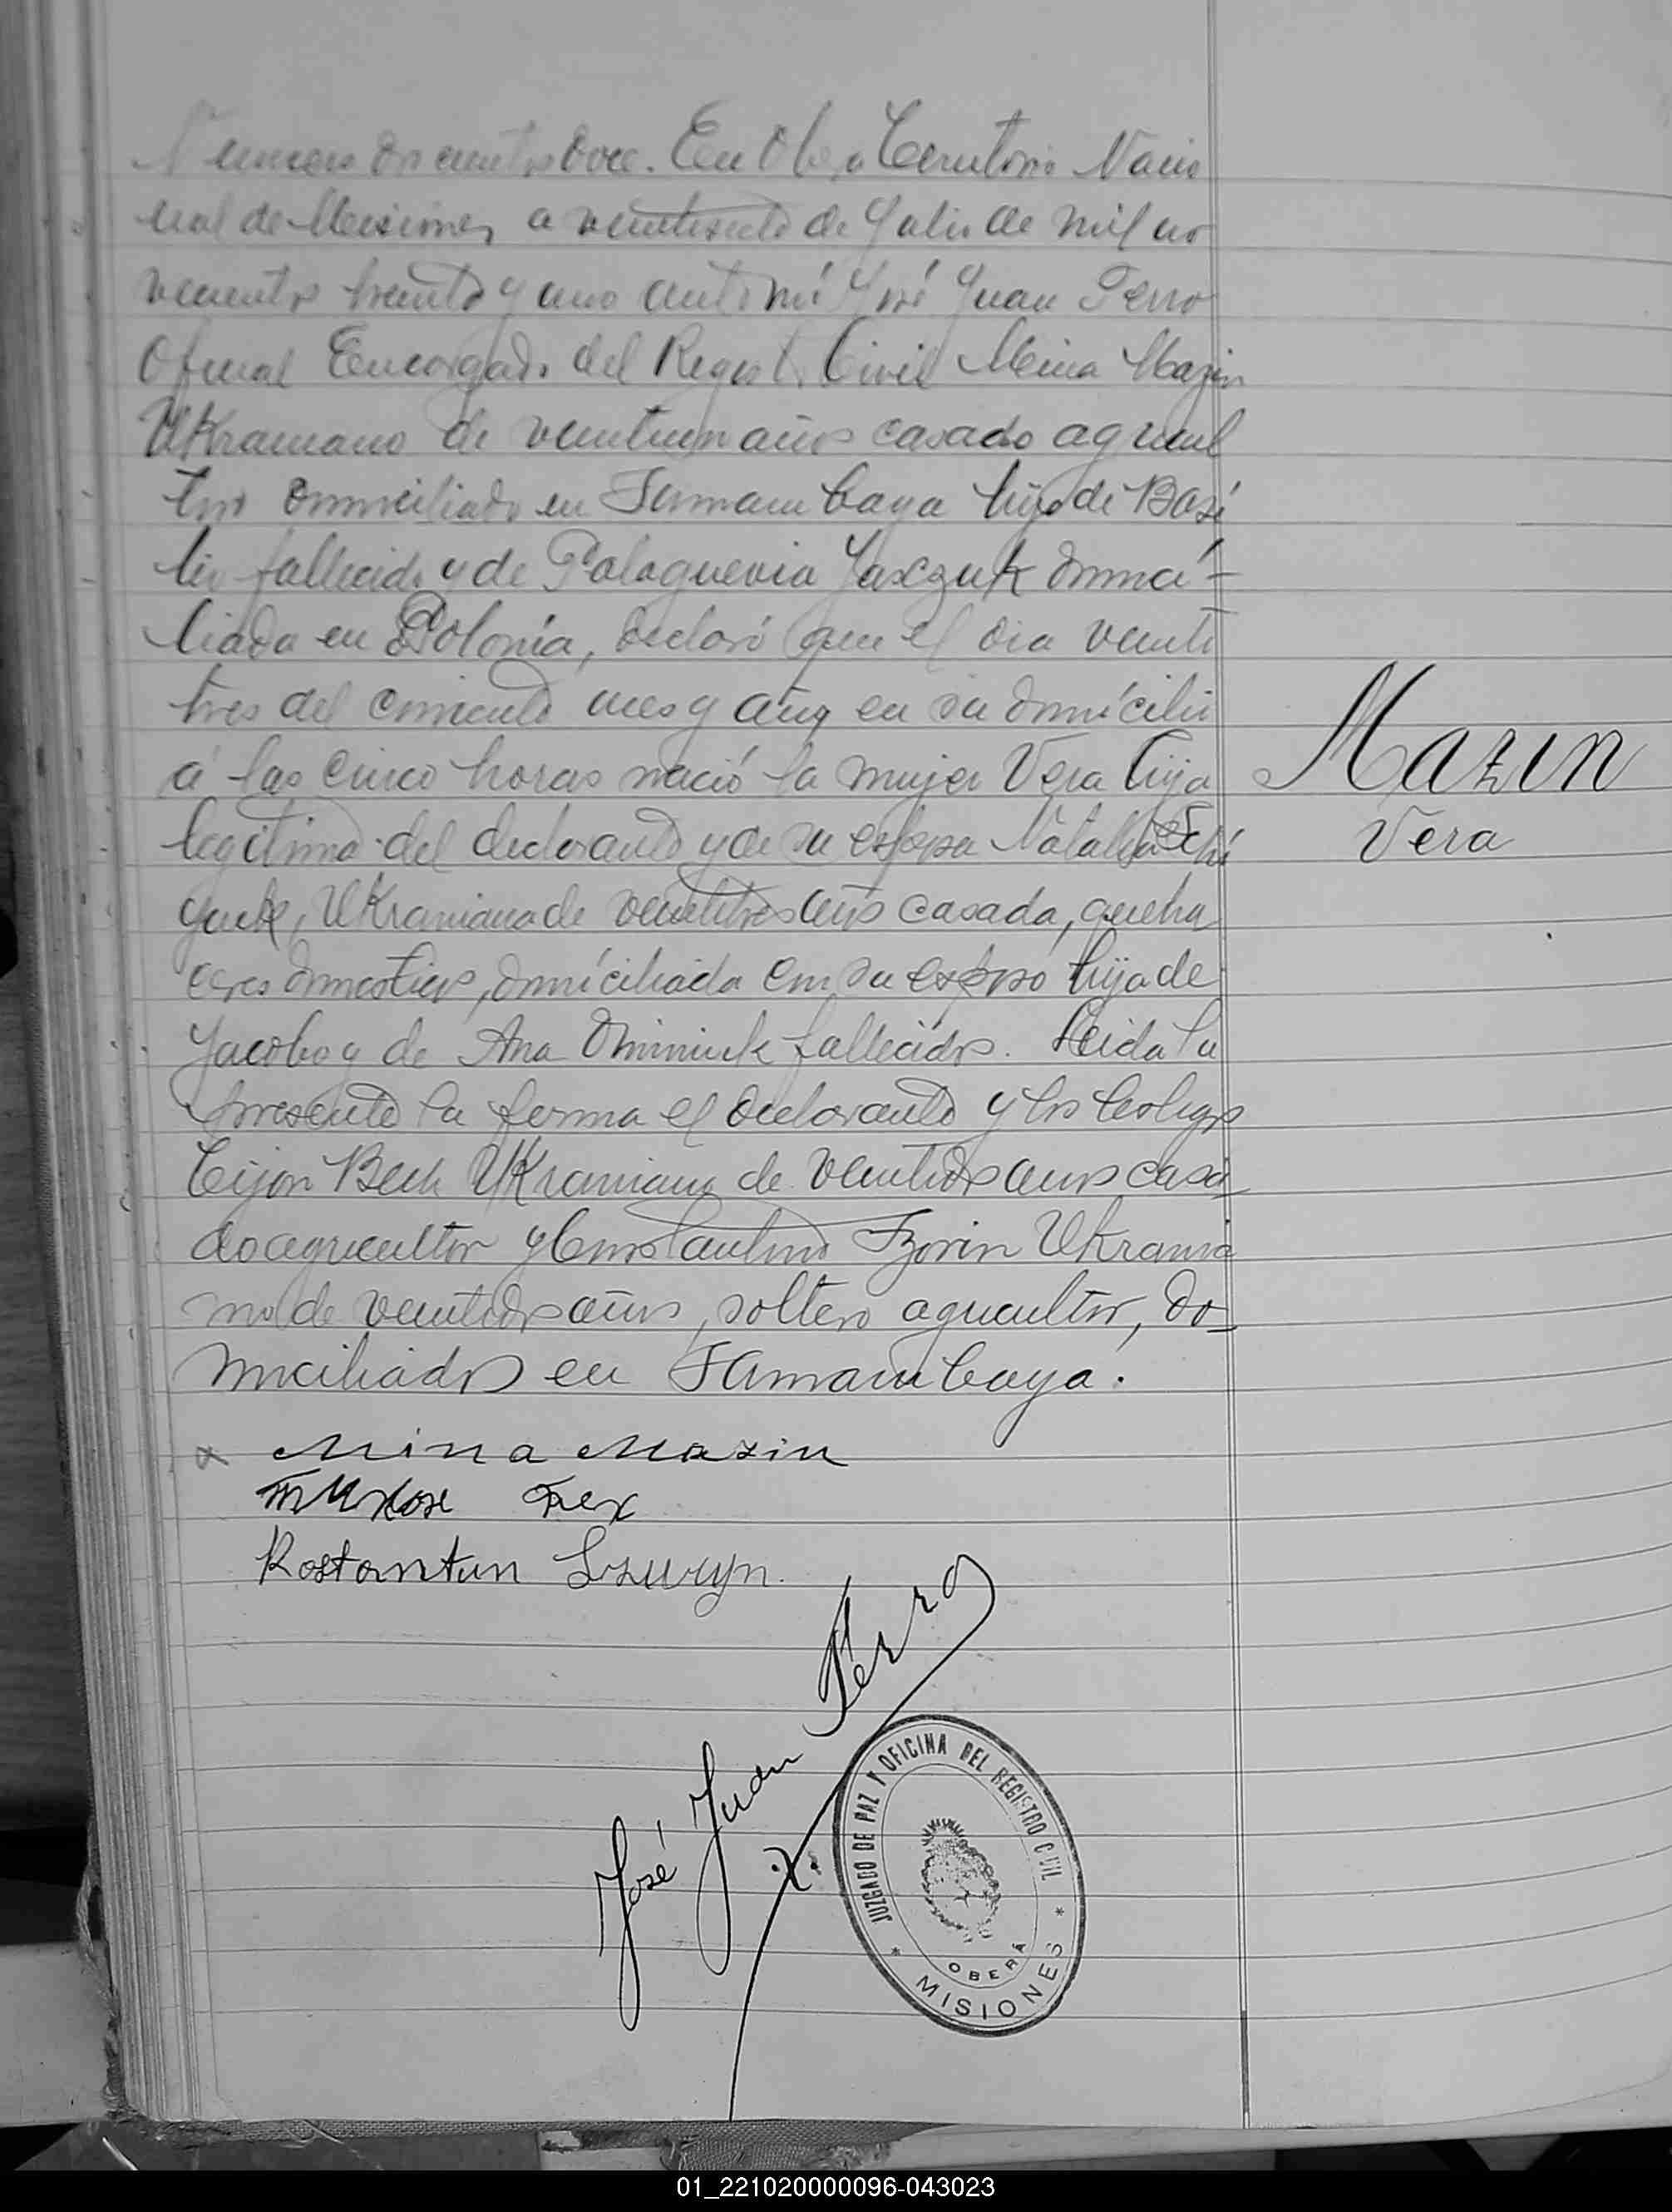 Numero doscientos doce. En Oberá Territorio Nacio
nal de Misiones a veintisiete de Julio de mil no
vecientos treinta y uno ante mí José Juan Perro
Oficial Encargado del Registro Civil Mina Mazin
UKraniano de veintiun años casado agricul
tor domiciliado en Tamambaya hijo de Basi
lio fallecido y de Jaszuk domici-
liada en Polonia, declaró que el dia veinti
tres del corriente mes y año, en su domicilio
á las cinco horas nació la mujer Vera hija
Mazin
legítima del declarante y de su esposa Natalia
Vera
UKraniana de veintitres años casada, queha
ceres domesticos, domiciliada con su esposo hija de
Jacobo y de Ana fallecidos. Leida la
presente la firma el declarante y los testigos
Tijon Bech UKraniano de veintidos años casa
do agricultor y Constantino Izorin UKrania
no de veintidos años, soltero agricultor, do_
miciliados en Tamambaya.
x Mina Mazin
Kostantun
José Juan Perro
JUZGADO DE PAZ Y OFICINA DEL REGISTRO CIVIL
OBERÁ
* MISIONES *
01_221020000096-043023